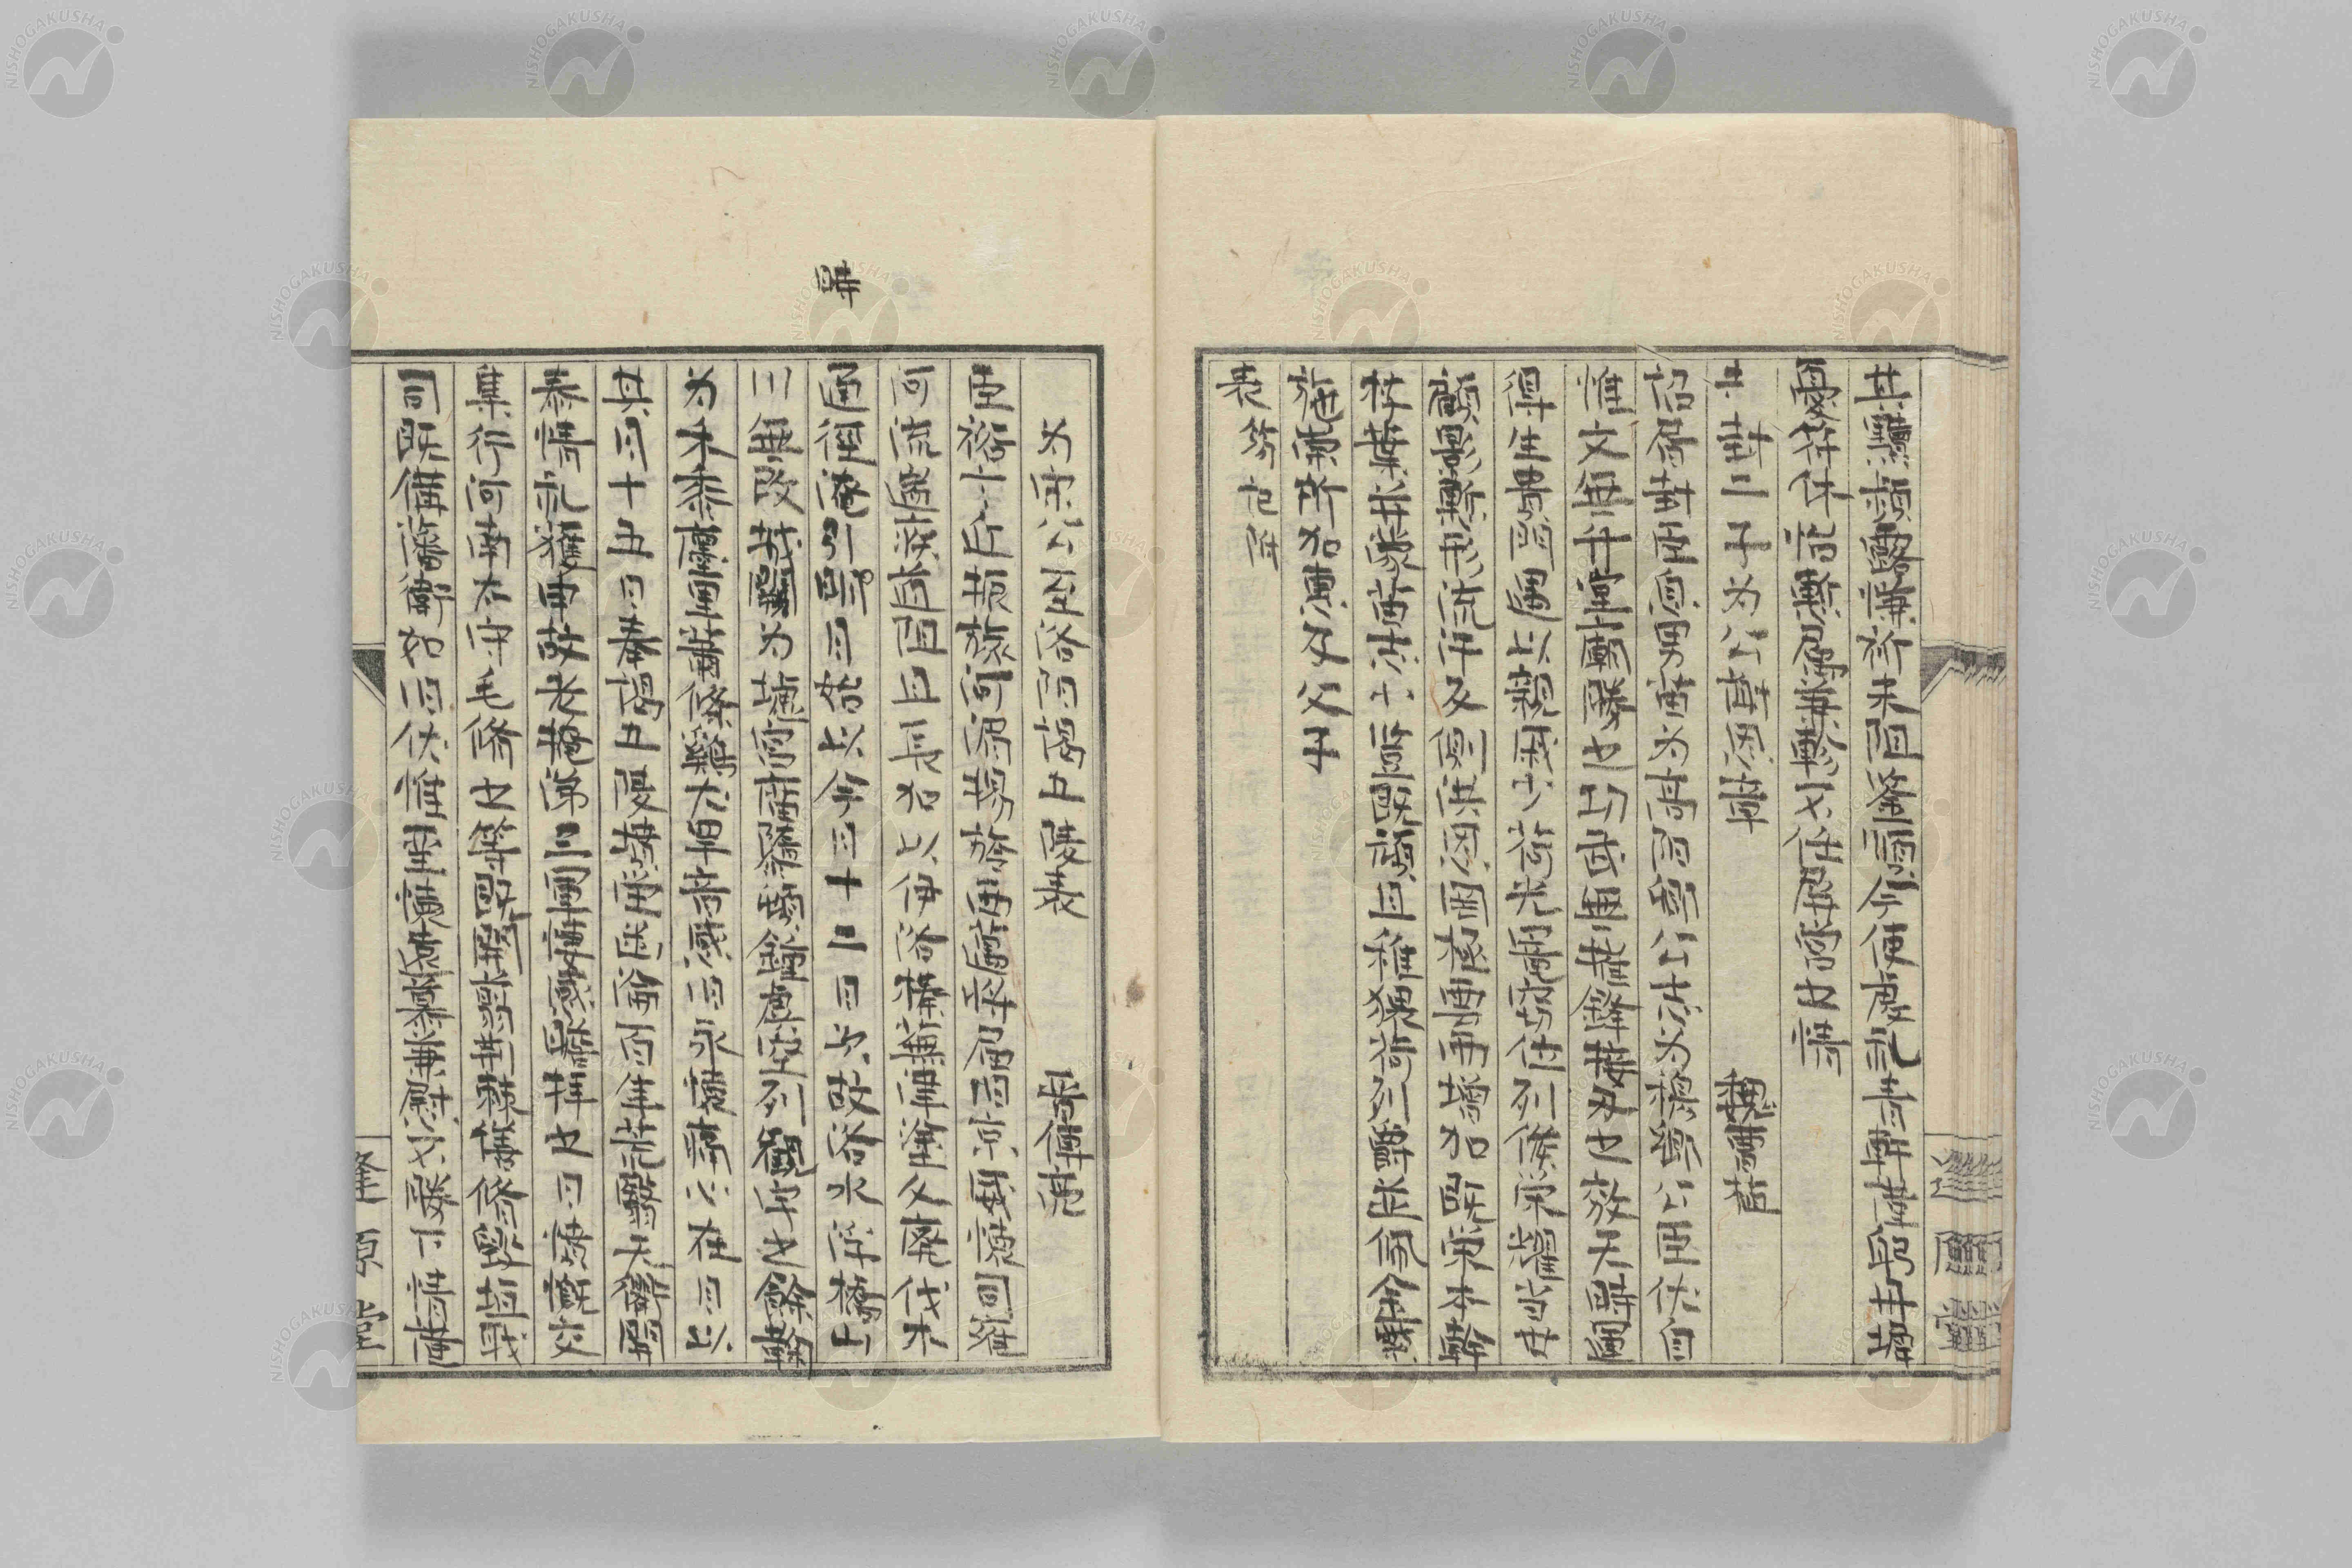 不任屏営之情
封二子為公謝恩章　魏曹植
詔書封臣息男苗為高陽郷公志為穆郷公臣伏自
惟文無升堂廟勝之功武無摧鋒接刃之效天時運
得生貴門遇以親戚少荷光寵窃位列侯栄耀当世
顧影慙形流汗反側洪恩罔極雲雨増加既栄本幹
枝葉并蒙苗志小竪既頑且稚猥荷列爵並佩金紫
施崇所加恵及父子
時
為宋公至洛陽謁五陵表　晋傅亮
臣裕言近振旅河湄揚旍西邁将届旧京威懐司雍
河流遄疾道阻且長加以伊洛榛蕪津塗久廃伐木
通徑淹引明月始以今月十二日次故洛水浮橋山
川無改城闕為墟宮廟隳頓鐘虡空列観宇之餘鞠
為禾黍廛里蕭條鶏犬罕音感旧永懐痛心在目以
其月十五日奉謁五陵墳塋幽淪百年荒翳天衢開
泰情礼獲申故老掩涕三軍悽感瞻拝之日憤慨交
集行河南太守毛脩之等既開翦荊棘繕修毀垣職
司既備蕃衛如旧伏惟聖懐遠慕兼慰不勝下情謹